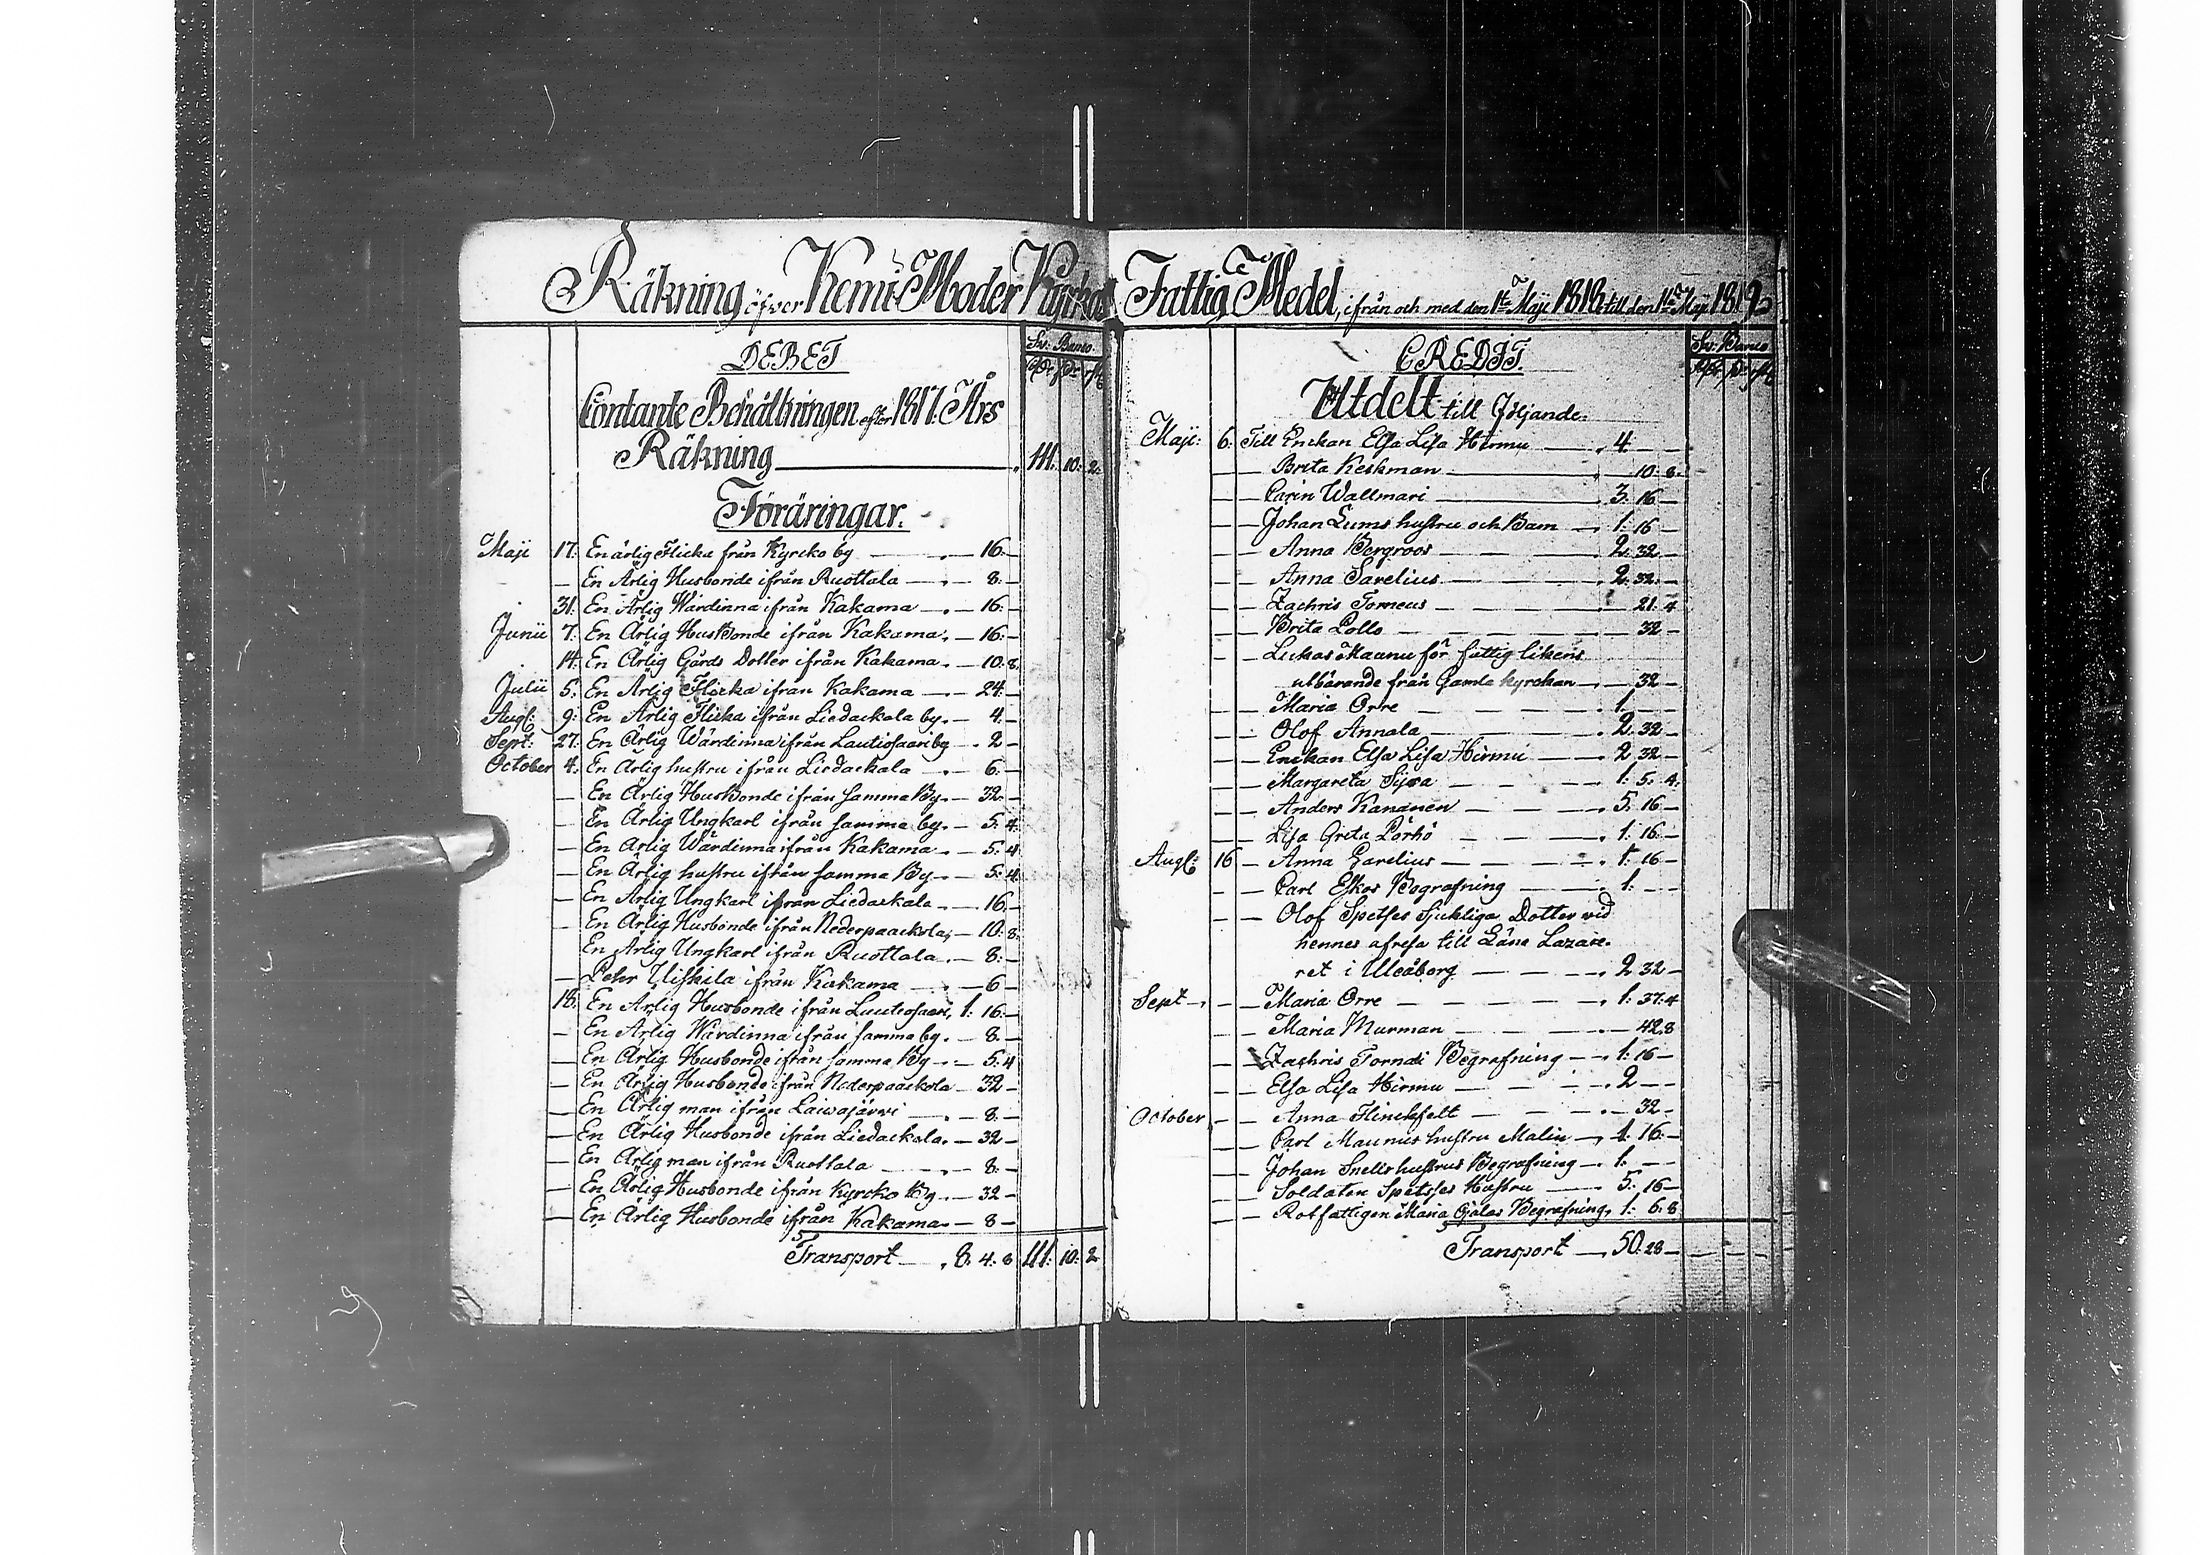 Räkning öfver Kemi Moder Kyrkas Fattig Medel, ifrån och med den 1ste Maji 1818 till den 1ste Maji 1819
DEBET
Sv: Banco.
Contante Behållningen efter 1817. Års
Räkning 111. 10: 2.
Föräringar.
Maji 17: En ärlig Flicka från Kyrcko by — 16: —
— En Ärlig Husbonde ifrån Ruottala — 8: —
31: En Ärlig Wärdinna ifrån Kakama — 16: —
Junii 7: En Ärlig Husbonde ifrån Kakama. — 16: —
14: En Ärlig Gårds Dotter ifrån Kakama. — 10: 8
Julii 5: En Ärlig Flicka ifrån Kakama — 24: —
Augs: 9: En Ärlig Flicka ifrån Liedackala by. — 4. —
Sept: 27: En Ärlig Wärdinna ifrån Lautiosaari by — 2 —
October 4: En Ärlig hustru ifrån Liedackala — 6. —
— En Ärlig Husbonde ifrån samma By. — 32. —
— En Ärlig Ungkarl ifrån samma by. — 5: 4.
— En Ärlig Wärdinna ifrån Kakama. — 5: 4
— En Ärlig hustru ifrån samma By. — 5: 4.
— En Ärlig Ungkarl ifrån Liedackala — 16. —
— En Ärlig Husbonde ifrån Nederpaackola, — 10: 8.
En Ärlig Ungkarl ifrån Ruottala — 8: —
— Peter ifrån Kakama — 6 —
18: En Ärlig Husbonde ifrån Lautiosaari, 1: 16: —
— En Ärlig Wärdinna ifrån samma by. — 8. —
— En Ärlig Husbonde ifrån samma By — 5: 4
— En Ärlig Husbonde ifrån Nederpaackola — 32 —
— En Ärlig man ifrån Laiwajärwi — 8. —
— En Ärlig Husbonde ifrån Liedackala. — 32 —
— En Ärlig man ifrån Ruottala — 8: —
— En Ärlig Husbonde ifrån Kyrcko By. — 32 —
— En Ärlig Husbonde ifrån Kakama. — 8 —
Transport — 8. 4. 8 111: 10: 2
CREDIT.
Sv: Banco
Utdelt till följande:
Maji: 6. Till Enckan Elsa Lisa Hirmu — 4. —
— — Brita Keskman — 10: 8.
— — Carin Wallmari — 3. 16 —
— — Johan Lums hustru och Barn — 1: 16 —
— — Anna Bergroos — 2. 32 —
— — Anna Sarelius — 2: 32. —
— — Zachris Torneus — 21. 4
— — Brita Pollo — 32 —
— — Lukas Maanu för fattig likens
utbärande från Gamla kyrckan — 32 —
— — Maria Orre — 1. —
— — Olof Annala — 2. 32 —
— — Enckan Elsa Lisa Hirmu — 2 32 —
— — Margareta — 1: 5. 4.
— — Anders Kananen — 5. 16 —
— — Lisa Greta Pörhö — 1: 16: —
Augs: 16 — Anna Sarelius — 1: 16 —
— — Carl Eskos Begrafning — 1: —
— — Olof Spetses Sjukliga Dotter vid
hennes afresa till Läne Lazare-
ret i Uleåborg — 2 32 —
Sept — — Maria Orre — 1: 37. 4
— — Maria Murman — 42. 8
— — Zachris Tornæi Begrafning — 1: 16 —
— — Elsa Lisa Hirmu — 2 — —
October — — Anna Flinckfelt — 32 —
— — Carl Maunus hustru Malin — 1. 16: —
— — Johan Snells hustrus Begrafning — 1: —
— — Soldaten Spetses Hustru — 5: 16 —
— — Rotfattigen Maria Begrafning, 1: 6. 8
Transport — 50: 28 —